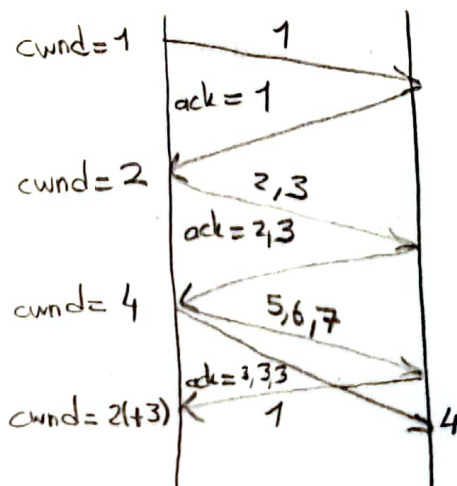 cwnd=1
1
ack=1
cwnd=2
2,3
ack=2,3
cwnd=4
5,6,7
ack=3,3,3
cwnd=2(+3)
1
4